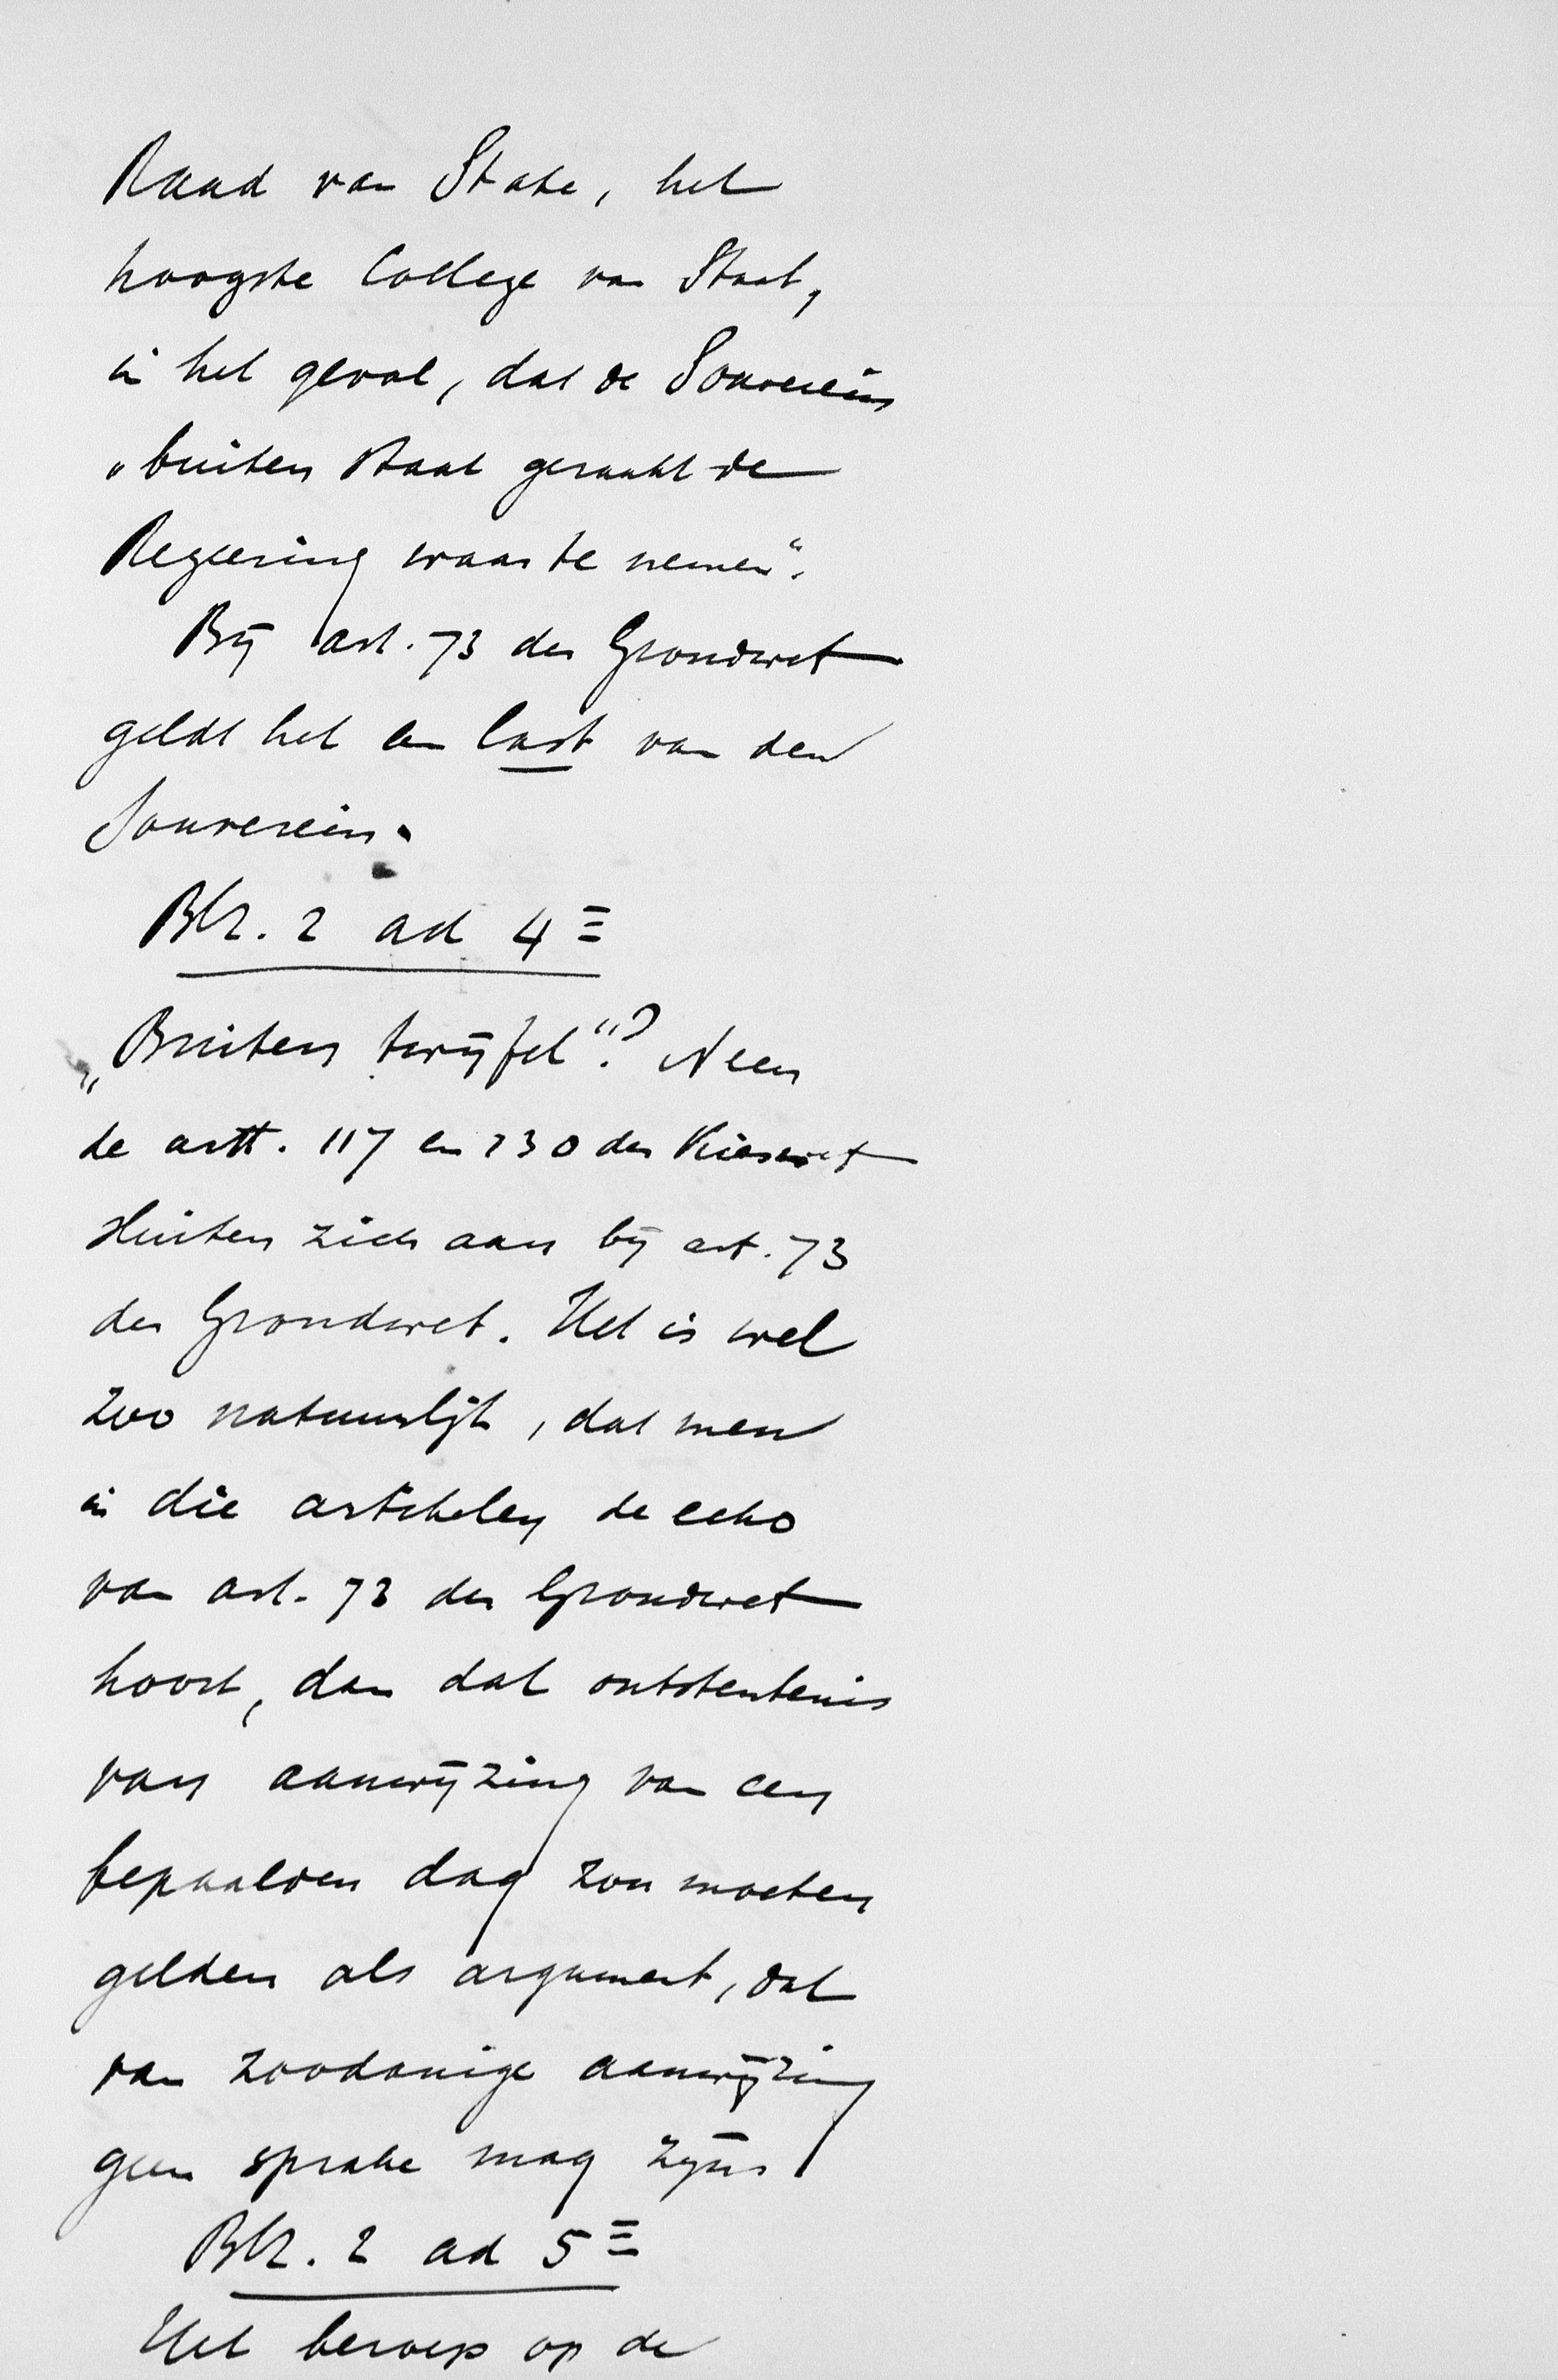 Raad van State, het
hoogste College van Staat,
in het geval, dat de Souverein
„buiten staat geraakt de
Regeering waar te nemen“.
Bij art. 73 der Grondwet
geldt het een last van den
Souverein.
Blz. 2 ad 4º
„Buiten twijfel“? Neen
de artt. 117 en 130 der Kieswet
sluiten zich aan bij art. 73
der Grondwet. Het is wel
zoo natuurlijk, dat men
in die artikelen de echo
van art. 73 der Grondwet
hoort, dan dat ontstentenis
van aanwijzing van een
bepaalden dag zou moeten
gelden als argument, dat
van zoodanige aanwijzing
geen sprake mag zijn.
Blz. 2 ad 5º
Het beroep op de